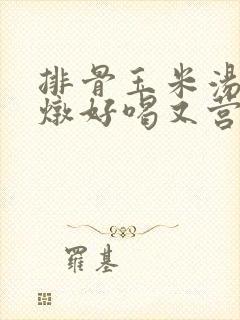 排骨玉米汤
燉好喝又营
羅基